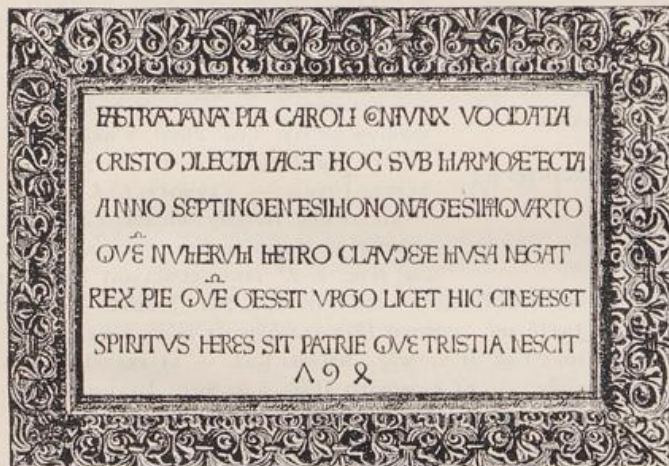 FASTRADANA PIA CAROLI CONIVNX VOCITATA
CRISTO DILECTA IACET HOC SVB MARMORE TECTA
ANNO SEPTINGENTESIMO NONAGESIMO QVARTO
QVE̅ NVMERVM METRO CLAVDERE MVSA NEGAT
REX PIE QVE̅ GESSIT VIRGO LICET HIC CINERESCIT
SPIRITVS HERES SIT PATRIE QVE TRISTIA NESCIT
Λ 9 ꝝ